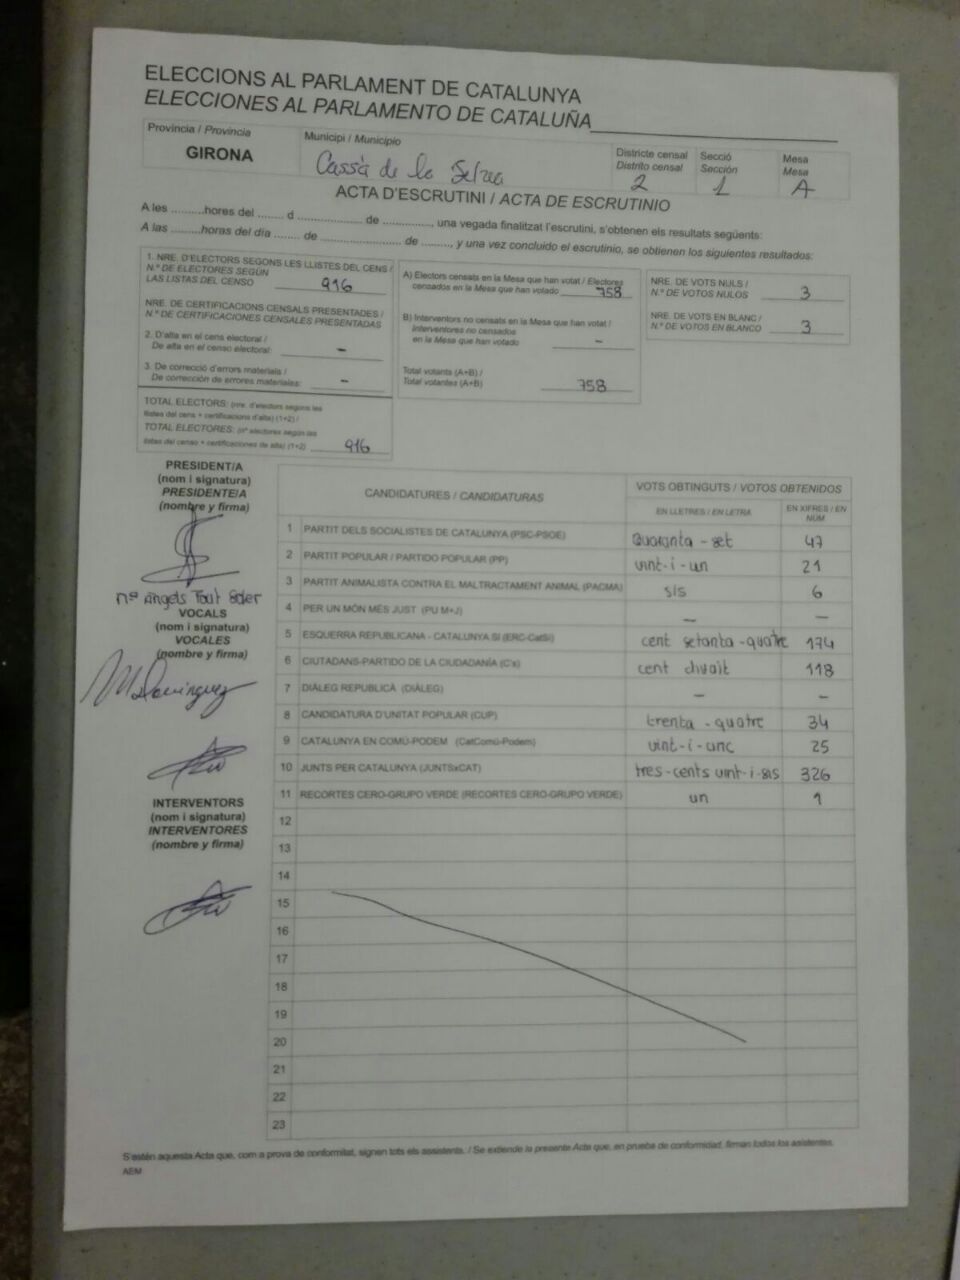 ELECCIONS AL PARLAMENT DE CATALUNYA
ELECCIONES AL PARLAMENTO DE CATALUÑA
Província / Provincia
GIRONA
Municipi / Municipio
Cassà de la Selva
Districte censal
Distrito censal
2
Secció
Sección
1
Mesa
Mesa
A
ACTA D'ESCRUTINI / ACTA DE ESCRUTINIO
A les ..........hores del ........ d .................... de ..............., una vegada finalitzat l'escrutini, s'obtenen els resultats següents:
A las ..........horas del día ........ de ........................ de ........, y una vez concluido el escrutinio, se obtienen los siguientes resultados:
1. NRE. D'ELECTORS SEGONS LES LLISTES DEL CENS /
N.º DE ELECTORES SEGÚN
LAS LISTAS DEL CENSO 916
NRE. DE CERTIFICACIONS CENSALS PRESENTADES /
N.º DE CERTIFICACIONES CENSALES PRESENTADAS
2. D'alta en el cens electoral /
De alta en el censo electoral: –
3. De correcció d'errors materials /
De corrección de errores materiales: –
TOTAL ELECTORS: (nre. d'electors segons les
llistes del cens + certificacions d'alta) (1+2) /
TOTAL ELECTORES: (nº electores según las
listas del censo + certificaciones de alta) (1+2) 916
A) Electors censats en la Mesa que han votat / Electores
censados en la Mesa que han votado 758
B) Interventors no censats en la Mesa que han votat /
Interventores no censados
en la Mesa que han votado –
Total votants (A+B) /
Total votantes (A+B) 758
NRE. DE VOTS NULS /
N.º DE VOTOS NULOS 3
NRE. DE VOTS EN BLANC /
N.º DE VOTOS EN BLANCO 3
PRESIDENT/A
(nom i signatura)
PRESIDENTE/A
(nombre y firma)
Mª Àngels
VOCALS
(nom i signatura)
VOCALES
(nombre y firma)
M Domínguez
INTERVENTORS
(nom i signatura)
INTERVENTORES
(nombre y firma)
CANDIDATURES / CANDIDATURAS
VOTS OBTINGUTS / VOTOS OBTENIDOS
EN LLETRES / EN LETRA
EN XIFRES / EN
NÚM
1 PARTIT DELS SOCIALISTES DE CATALUNYA (PSC-PSOE) Quaranta-set 47
2 PARTIT POPULAR / PARTIDO POPULAR (PP) vint-i-un 21
3 PARTIT ANIMALISTA CONTRA EL MALTRACTAMENT ANIMAL (PACMA) sis 6
4 PER UN MÓN MÉS JUST (PU M+J) – –
5 ESQUERRA REPUBLICANA - CATALUNYA SÍ (ERC-CatSí) cent setanta-quatre 174
6 CIUTADANS-PARTIDO DE LA CIUDADANÍA (C's) cent divuit 118
7 DIÀLEG REPUBLICÀ (DIÀLEG) – –
8 CANDIDATURA D'UNITAT POPULAR (CUP) trenta-quatre 34
9 CATALUNYA EN COMÚ-PODEM (CatComú-Podem) vint-i-cinc 25
10 JUNTS PER CATALUNYA (JUNTSxCAT) tres-cents vint-i-sis 326
11 RECORTES CERO-GRUPO VERDE (RECORTES CERO-GRUPO VERDE) un 1
12
13
14
15
16
17
18
19
20
21
22
23
S'estén aquesta Acta que, com a prova de conformitat, signen tots els assistents. / Se extiende la presente Acta que, en prueba de conformidad, firman todos los asistentes.
AEM